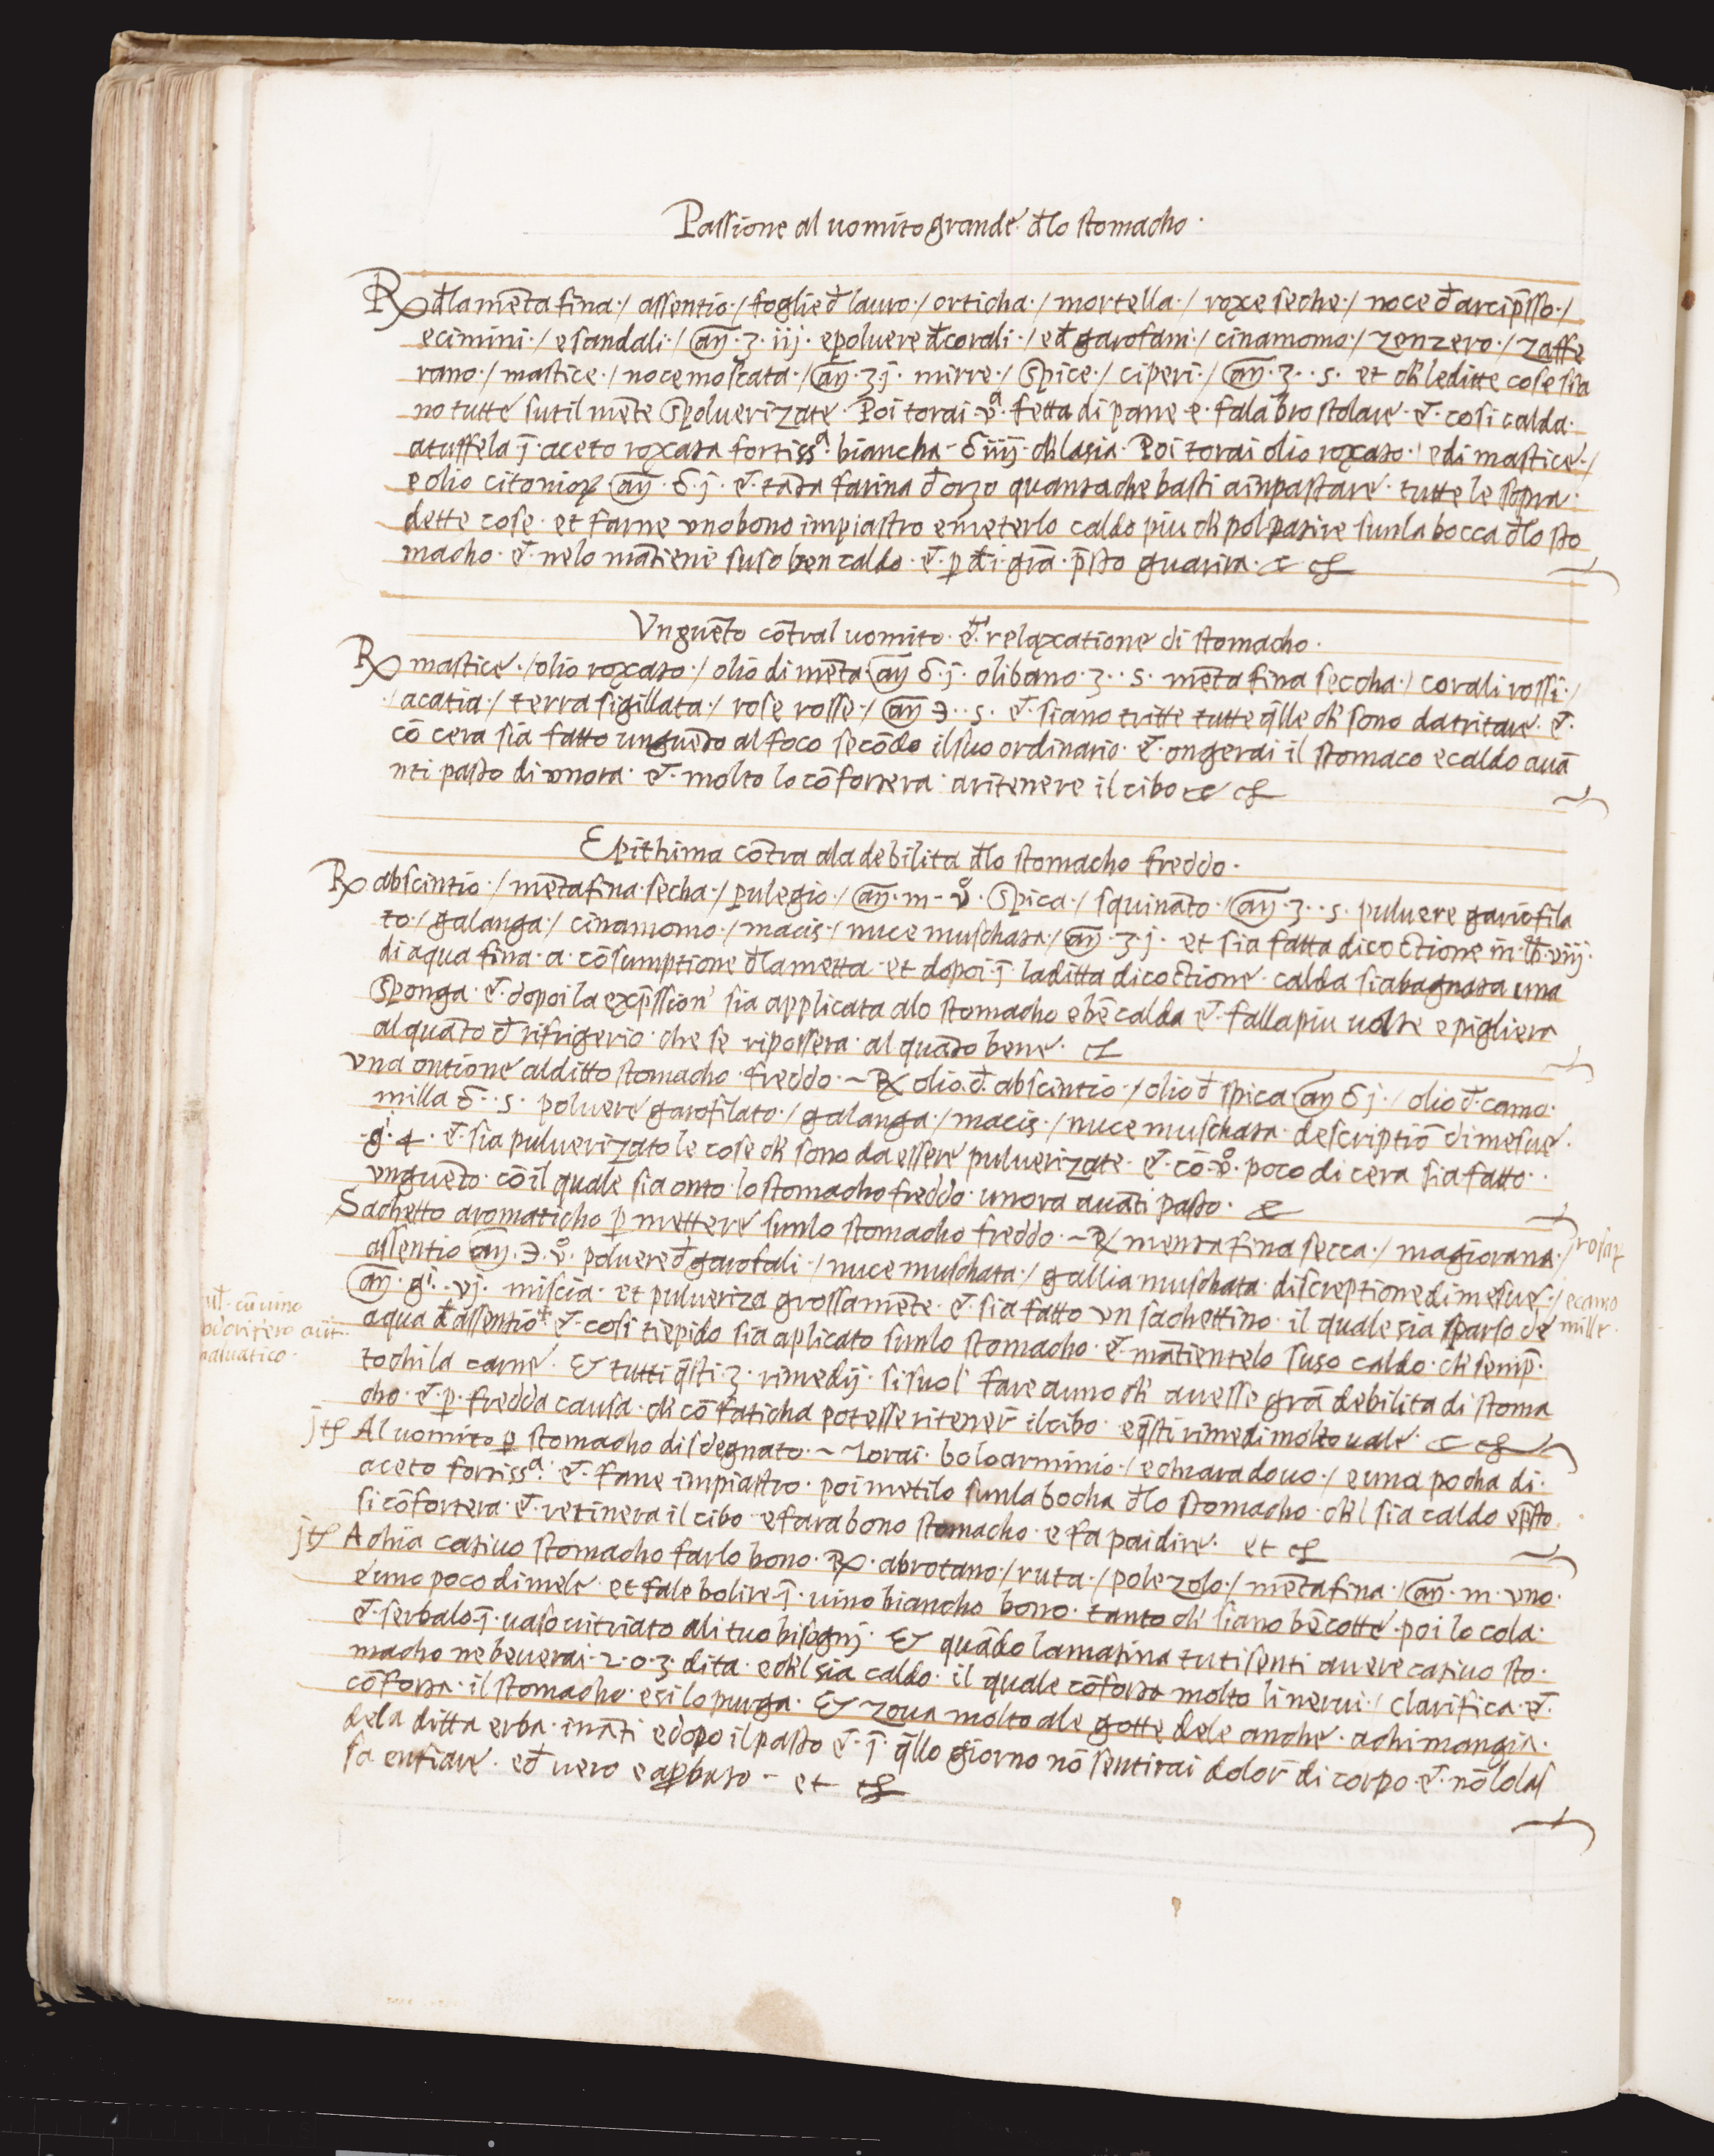 Passione al uomito grande. đlo stomacho.
℞ đla mēta fina./ assentio./ foglie đ lauro./ orticha./ mortella./ roxe seche./ noce đ arcip̄sso./
e cimini./ e sandali./ añ. ʒ. iij. e poluere đ corali./ e đ garofani./ cinamomo./ zenzero./ zaffe
rano./ mastice./ noce moscata./ añ. ʒ. j. mirre./ spice./ ciperi./ añ. ʒ. . s. et ch̄ le ditte cose sia
no tutte sutil mēte spoluerizate. Poi torai .vª. fetta di pane e. fala brostolare. et. cosi calda.
atuffela ī. aceto roxata fortissª. biancha - δ iiij. ch̄ la sia. Poi torai olio roxato./ e di mastice./
e olio citonioꝝ añ. δ. j. et. tāta farina đ orzo quanta che basti a inpastare. tutte le sopra.
dette cose. et farne vno bono impiastro e meterlo caldo piu ch̄ pol patire sun la bocca đlo sto
macho. et. nelo mātieni suso ben caldo. et. p đ i. grā. p̄sto guarira. et
Vnguēto cōtral uomito. et. relaxatione di stomacho.
℞ mastice./ olio roxato./ olio di mēta. añ δ. j. olibano. ʒ. . s. mēta fina seccha./ corali rossi./
/ acatia./ terra sigillata./ rose rosse./ añ ℈. . s. et. siano tritte tutte q̄lle ch̄ sono da tritare. et.
cō cera sia fatto unguēto al foco secōdo il suo ordinario. et. ongerai il stomaco e caldo auā
nti pasto di vnora. et. molto lo cōfortera. a ritenere il cibo et
Epithima cōtra ala debilita đlo stomacho freddo.
℞ abscintio./ mēta fina. secha./ pulegio./ añ. m - vº. spica./ squināto./ añ. ʒ. . s. puluere gariofila
to./ galanga./ cinamomo./ macis./ nuce muschata./ añ. ʒ. j. et sia fatta dicoctione in. lb. viij.
di aqua fina. a. cōsumptione đla metta. et dopoi. ī. la ditta dicoctione. calda sia bagnata una
sponga. et. dopoi la exp̄ssion' sia applicata alo stomacho e bē calda et. falla piu uolte e pigliera
alquāto đ rifrigerio. che se ripossera. al quāto bene.
vna ontione al ditto stomacho. freddo. ~ ℞ olio. đ. abscintio./ olio đ spica añ δ j./ olio đ. camo.
milla δ. . s. poluere garofilato./ galanga./ macis./ nuce muschata. descriptiō di mesue.
. gⁱ. 4. et. sia puluerizato le cose ch̄ sono da essere puluerizate. et. cō. vº. poco di cera sia fatto. .
vnguēto. cō il quale sia onto. lo stomacho freddo. unora auāti pasto. et
Sachetto aromaticho p mettere sunlo stomacho freddo. ~ ℞ menta fina secca./ magiorana./ rosaꝝ
assentio añ. ℈. vº. poluere đ garofali./ nuce muschata./ gallia muschata. discreptione di mesue./ e camo
añ. gⁱ. vj. miscia. et pulueriza grossamēte. et. sia fatto vn sachettino. il quale sia sparso de mille.
ul. cū uino
odorifero aut.
maluatico.
aqua đ assentio et. cosi tiepido sia aplicato sunlo stomacho. et. mātientelo suso caldo. ch̄ semp̄.
tochi la carne. Et tutti q̄sti. 3. rimedij. si suol' fare a uno ch̄ auesse grā debilita di stoma
cho. et. p. fredda causa. ch̄ cō faticha potesse ritener̄ il cibo. e q̄sti rimedi molto uale. et
Al uomito p stomacho disdegnato. ~ Torai. boloarminio./ e chiara douo./ e una pocha di.
aceto fortissª. et. fane impiastro. poi metilo sunla bocha đlo stomacho. ch̄l sia caldo e p̄sto
si cōfortera. et. retinera il cibo. e fara bono stomacho. e fa paidire. et
A chia catiuo stomacho farlo bono. ℞. abrotano./ ruta./ polezolo./ mēta fina./ añ. m. vno.
e uno poco di mele. et fale bolire. ī. uino biancho bono. tanto ch̄ siano bē cotte. poi lo cola.
et. serbalo. ī. uaso uitriato ali tuo bisognj. Et quādo la matina tu ti senti auere catiuo sto.
macho ne beuerai. 2. o. 3. dita. e ch̄l sia caldo. il quale cōforta molto li nerui./ clarifica. et.
cōforta. il stomacho. e si lo purga. Et zoua molto ale gotte dele anche. a chi mangia.
dela ditta erba. ināti e dopo il pasto et. ī. q̄llo giorno nō sentirai dolor̄ di corpo. et. nō lo las
sa enfiare. e đ uero e apbato - et